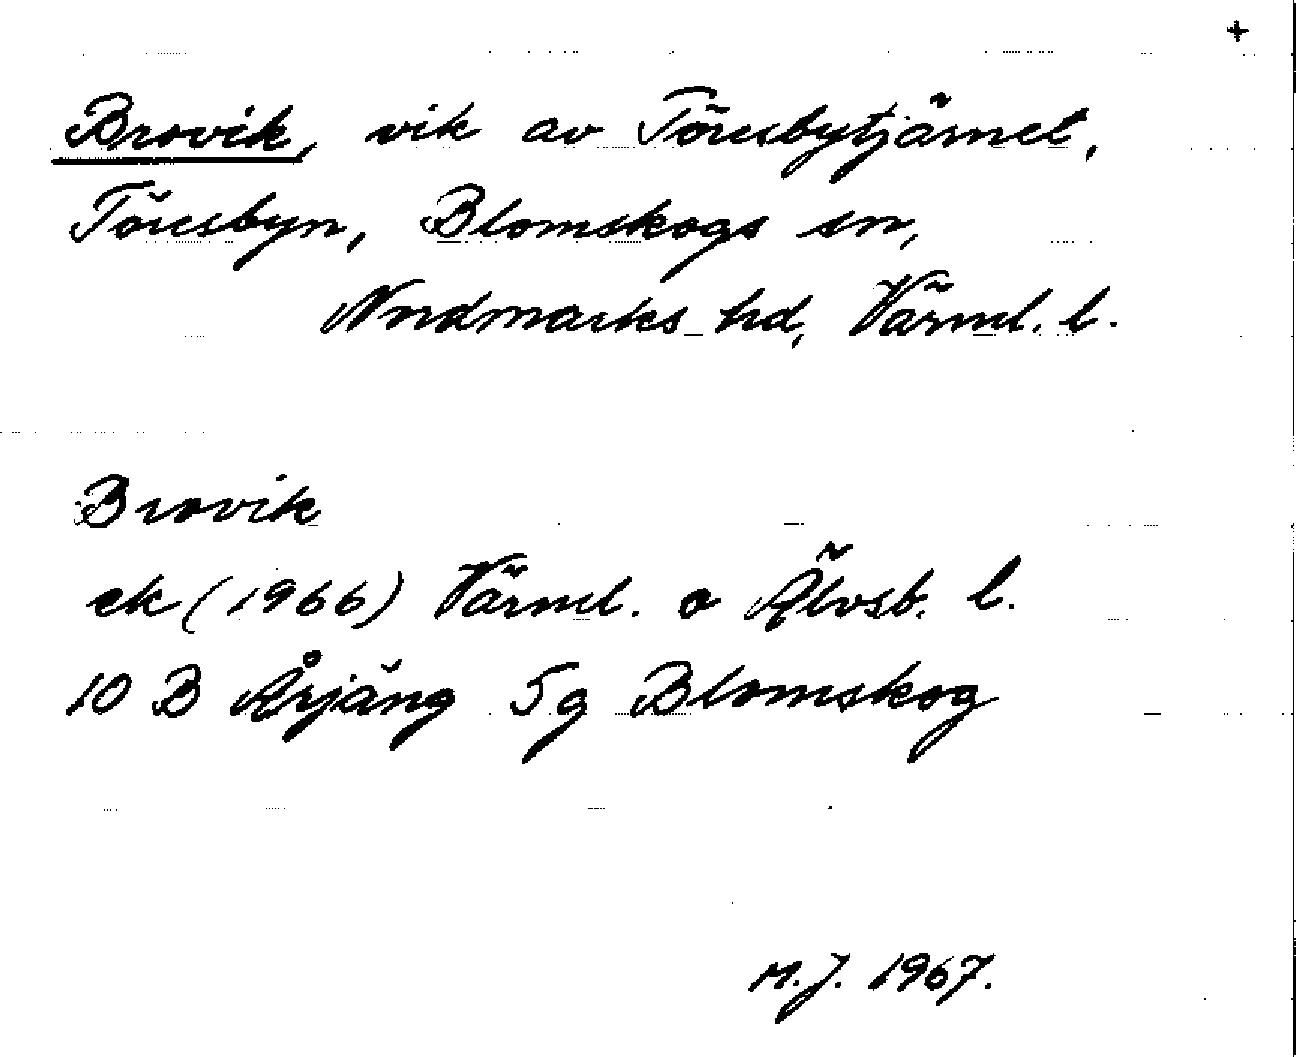 +
Brovik, vik av Töresbytjärnet,
Töresbyn, Blomskogs sn,
Nordmarks hd, Värml. l.
Brovik
ek (1966) Värml. o Älvsb. l.
10 B Årjäng 5g Blomskog
M.J. 1967.